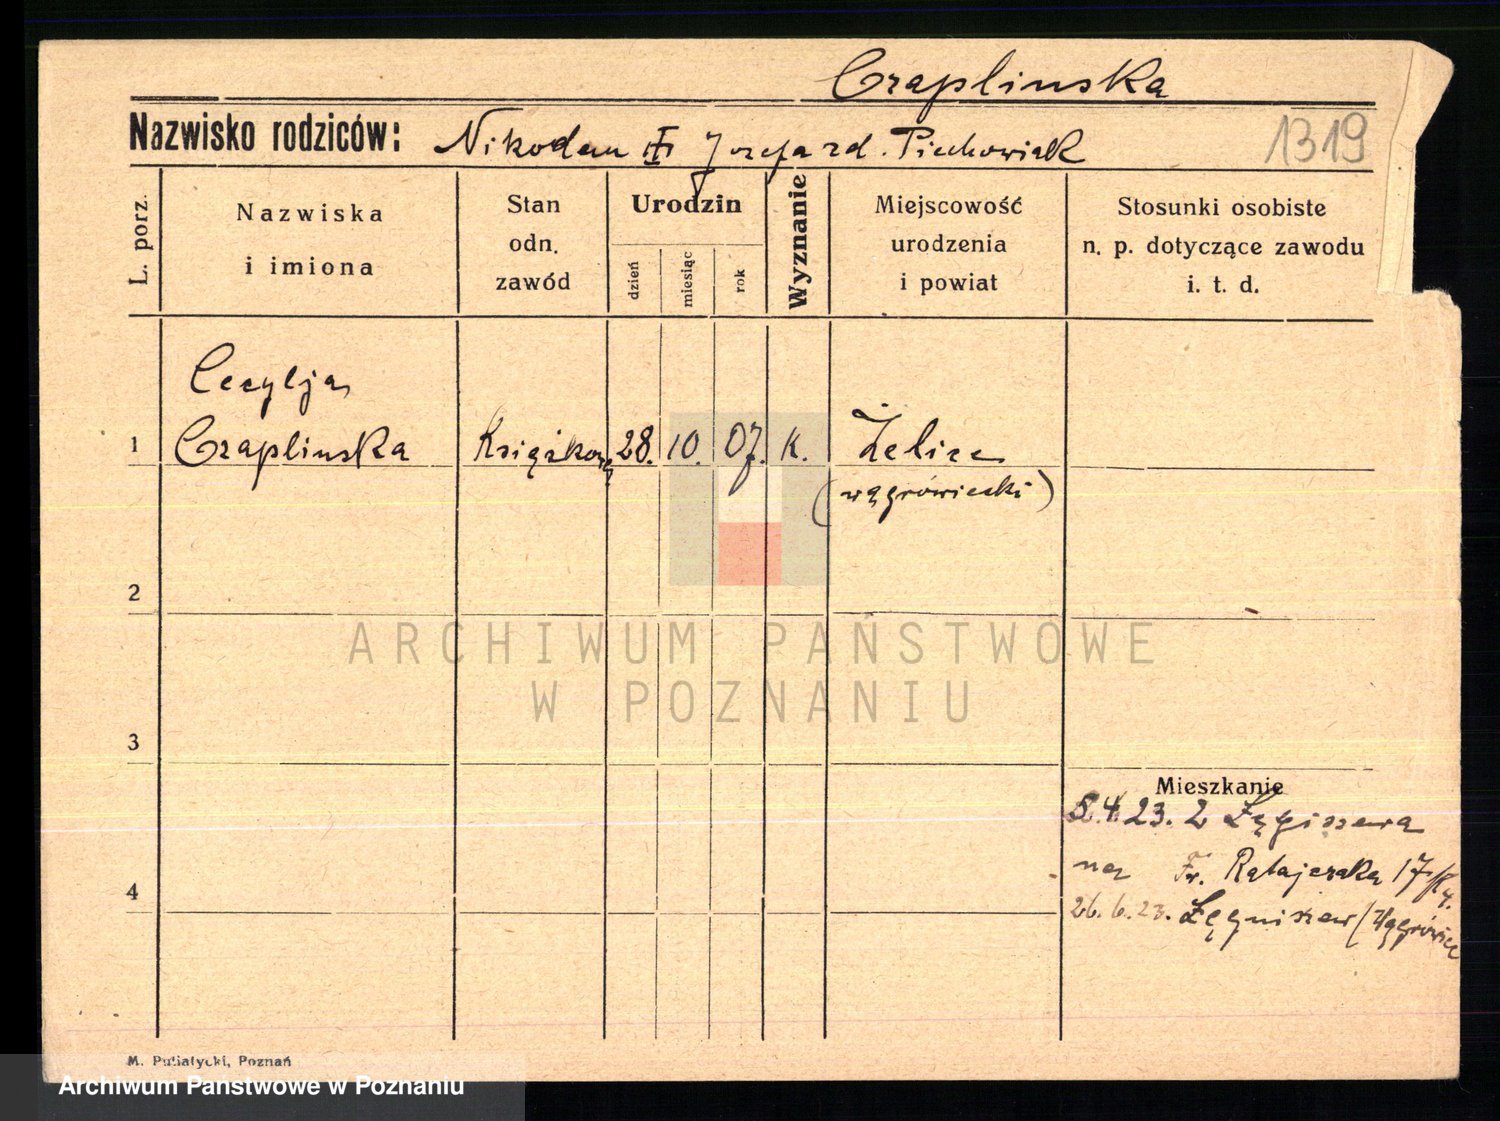 Czaplinska
Nazwisko rodziców: Nikodem i Jozefa zd. Piechowiak
1319
L. porz.
Nazwiska
i imiona
Stan
odn.
zawód
Urodzin
dzień
miesiąc
rok
Wyznanie
Miejscowość
urodzenia
i powiat
Stosunki osobiste
n. p. dotyczące zawodu
i. t. d.
Cecylja
1 Czaplinska Książkowa 28. 10. 07. K. Żelice
(wągrówiecki)
2
ARCHIWUM PAŃSTWOWE
W POZNANIU
3
Mieszkanie
5.4.23. z
na Fr. Ratajczaka 17
4
26.6.23. (Wągrówiec
M. Putiatycki, Poznań
Archiwum Państwowe w Poznaniu